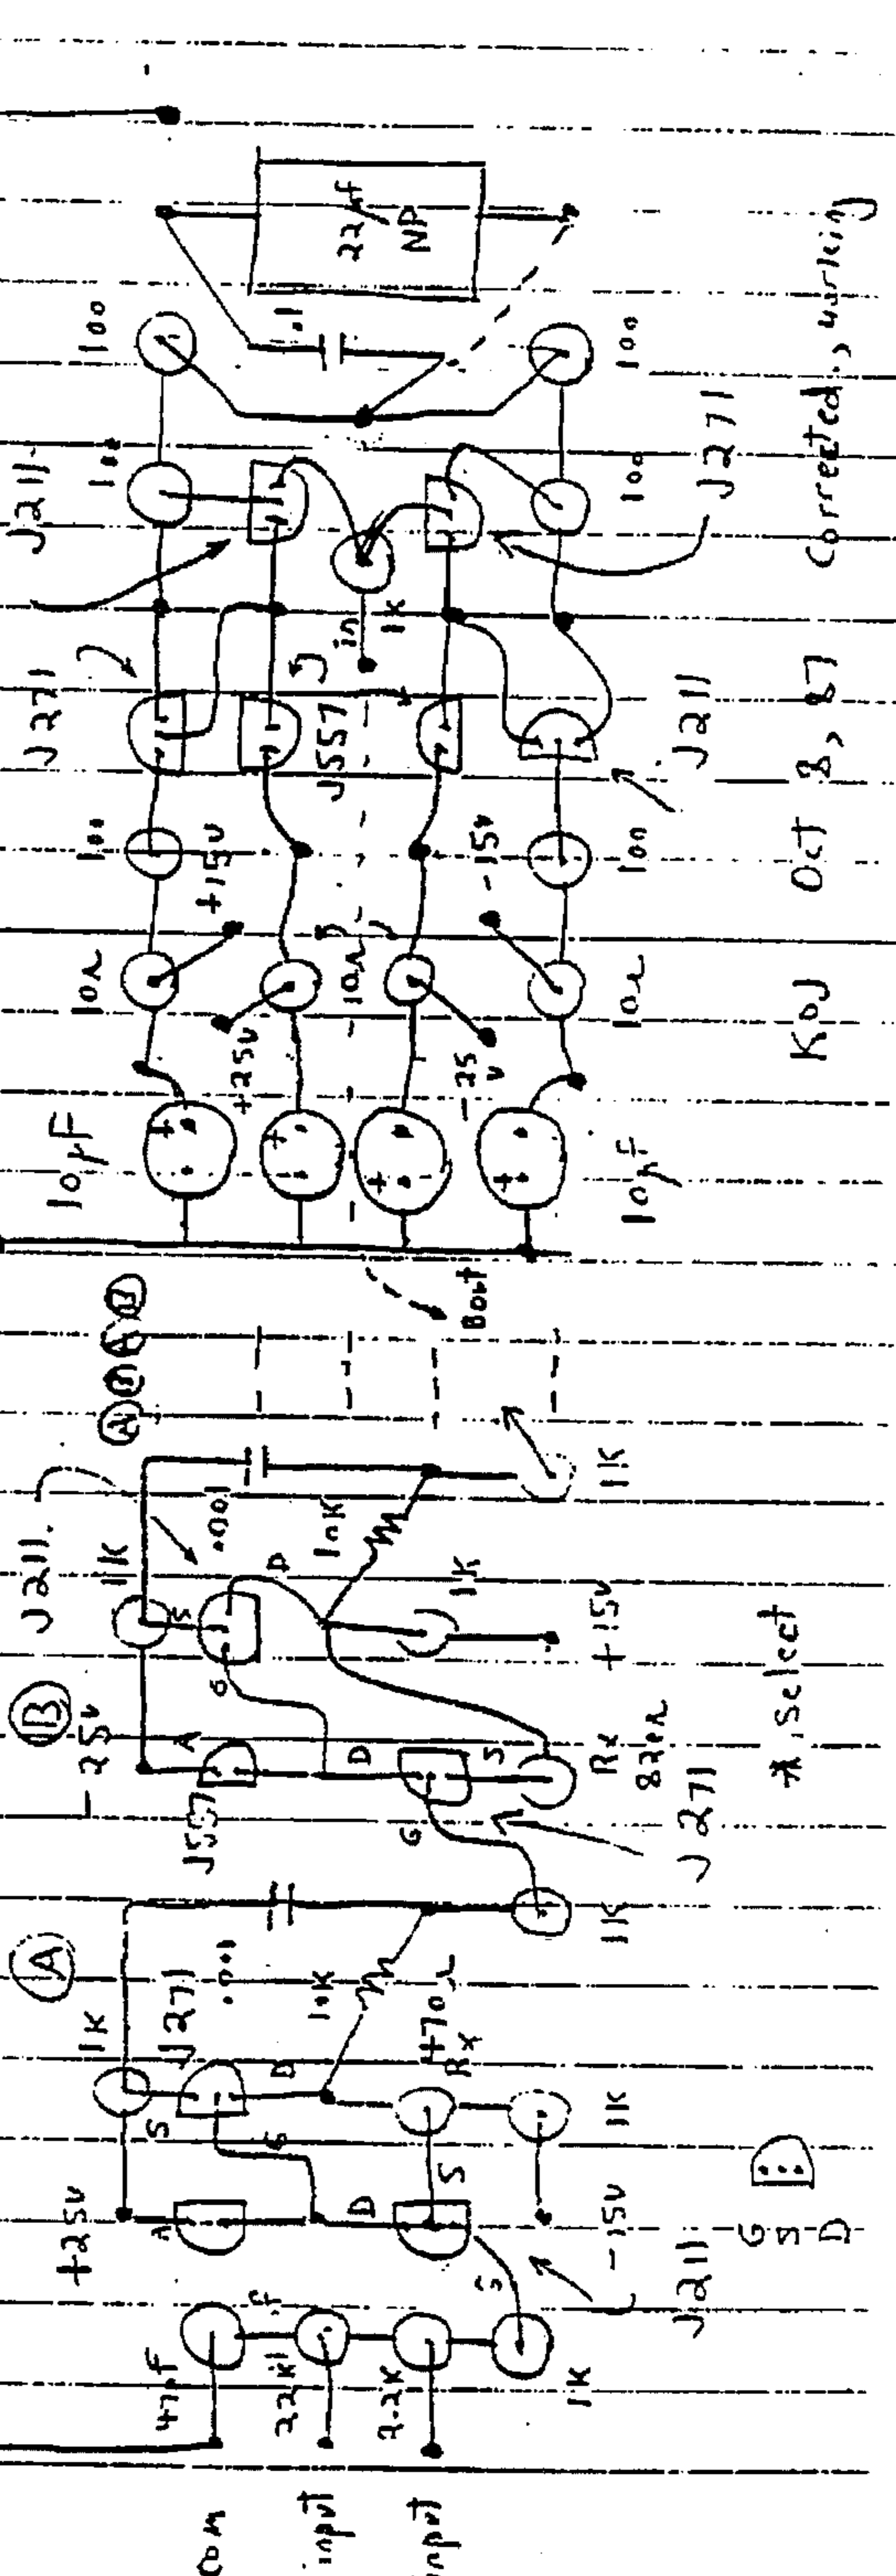 com
input
input
47pF
22K
2.2K
1K
+25V
A
D
S
G
-15V
J211
G
S
D
(A)
1K
J271
.001
S
D
G
10K
470Ω
Rx
S
1K
1K
(B)
-25V
J557
A
D
G
S
J271
Rx
820Ω
* Select
J211
1K
S
.001
G
D
10K
1K
+15V
1K
(A) (B) (A) (B)
Bout
10µF
10µF
+
+
+
+
+25V
-25V
10Ω
10Ω
10Ω
+15V
-15V
100
100
J271
J557
J211
in
1K
J211
100
100
J271
100
100
.1
22µf
NP
KOJ Oct 8, 87 Corrected, working